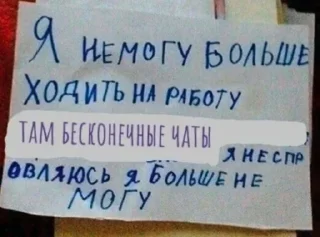 Я НЕМОГУ БОЛЬШЕ
ХОДИТЬ НА РАБОТУ
ТАМ БЕСКОНЕЧНЫЕ ЧАТЫ
Я НЕСПР
ОВЛЯЮСЬ Я БОЛЬШЕ НЕ
МОГУ